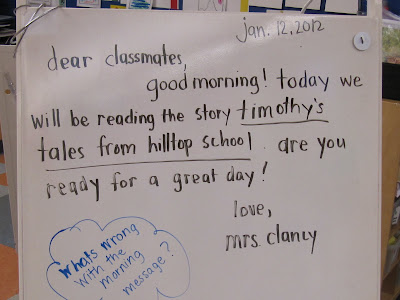 jan. 12, 2012
dear classmates,
good morning! today we
will be reading the story timothy's
tales from hilltop school. are you
ready for a great day!
love,
mrs. clancy
What's wrong
with the
morning
message?